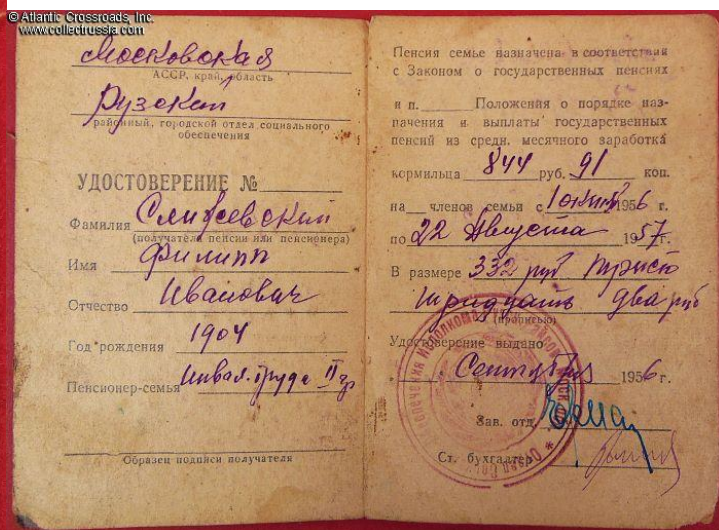 © Atlantic Crossroads, Inc.
www.collectrussia.com
Московская
АССР, край, область
Рузский
районный, городской отдел социального
обеспечения
УДОСТОВЕРЕНИЕ №
Фамилия
(получателя пенсии или пенсионера)
Имя Филипп
Отчество Иванович
Год рождения 1904
Пенсионер-семья Инвал. труда II гр
Образец подписи получателя
Пенсия семье назначена в соответствии
с Законом о государственных пенсиях
и п. Положения о порядке наз-
начения и выплаты государственных
пенсий из средн. месячного заработка
кормильца 844 руб. 91 коп.
на членов семьи с 1 октяб 1956 г.
по 22 Августа 1957 г.
В размере 332 руб Триста
тридцать два руб
(прописью)
Удостоверение выдано
Сентября 1956 г.
Зав. отд.
Ст. бухгалтер